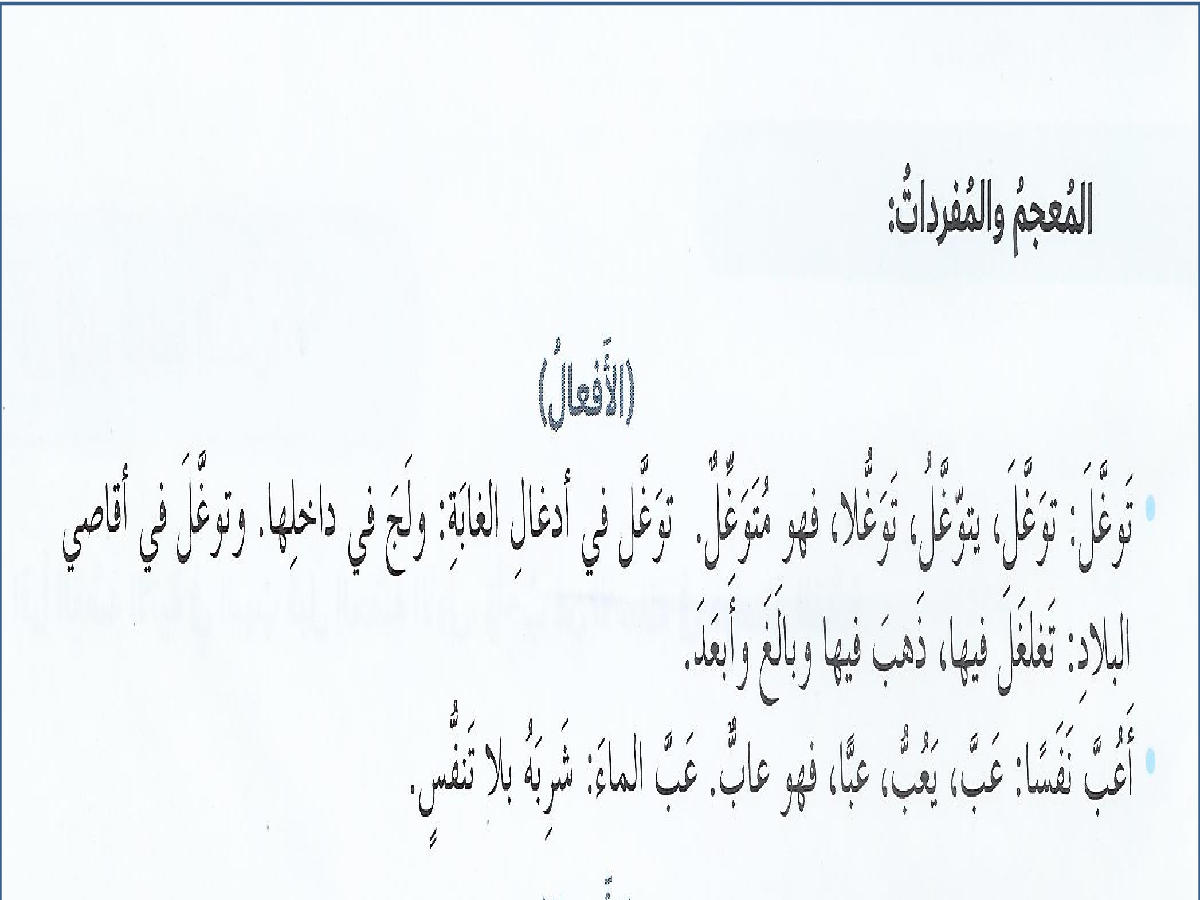 المُعجمُ والمُفرداتُ:
(الأَفعالُ)
• تَوغَّلَ: توَغَّلَ، يتوّغَّلُ، تَوَغُّلا، فهو مُتَوَغِّلٌ. توَغَّل في أدغالِ الغابَةِ: ولَجَ في داخلِها. وتوغَّلَ في أقاصي
البلادِ: تَغلغَلَ فيها، ذَهبَ فيها وبالَغَ وأَبعَدَ.
• أَعُبَّ نَفَسًا: عَبَّ، يَعُبُّ، عبًّا، فهو عابٌّ. عَبَّ الماءَ: شَرِبَهُ بلا تَنفُّسٍ.